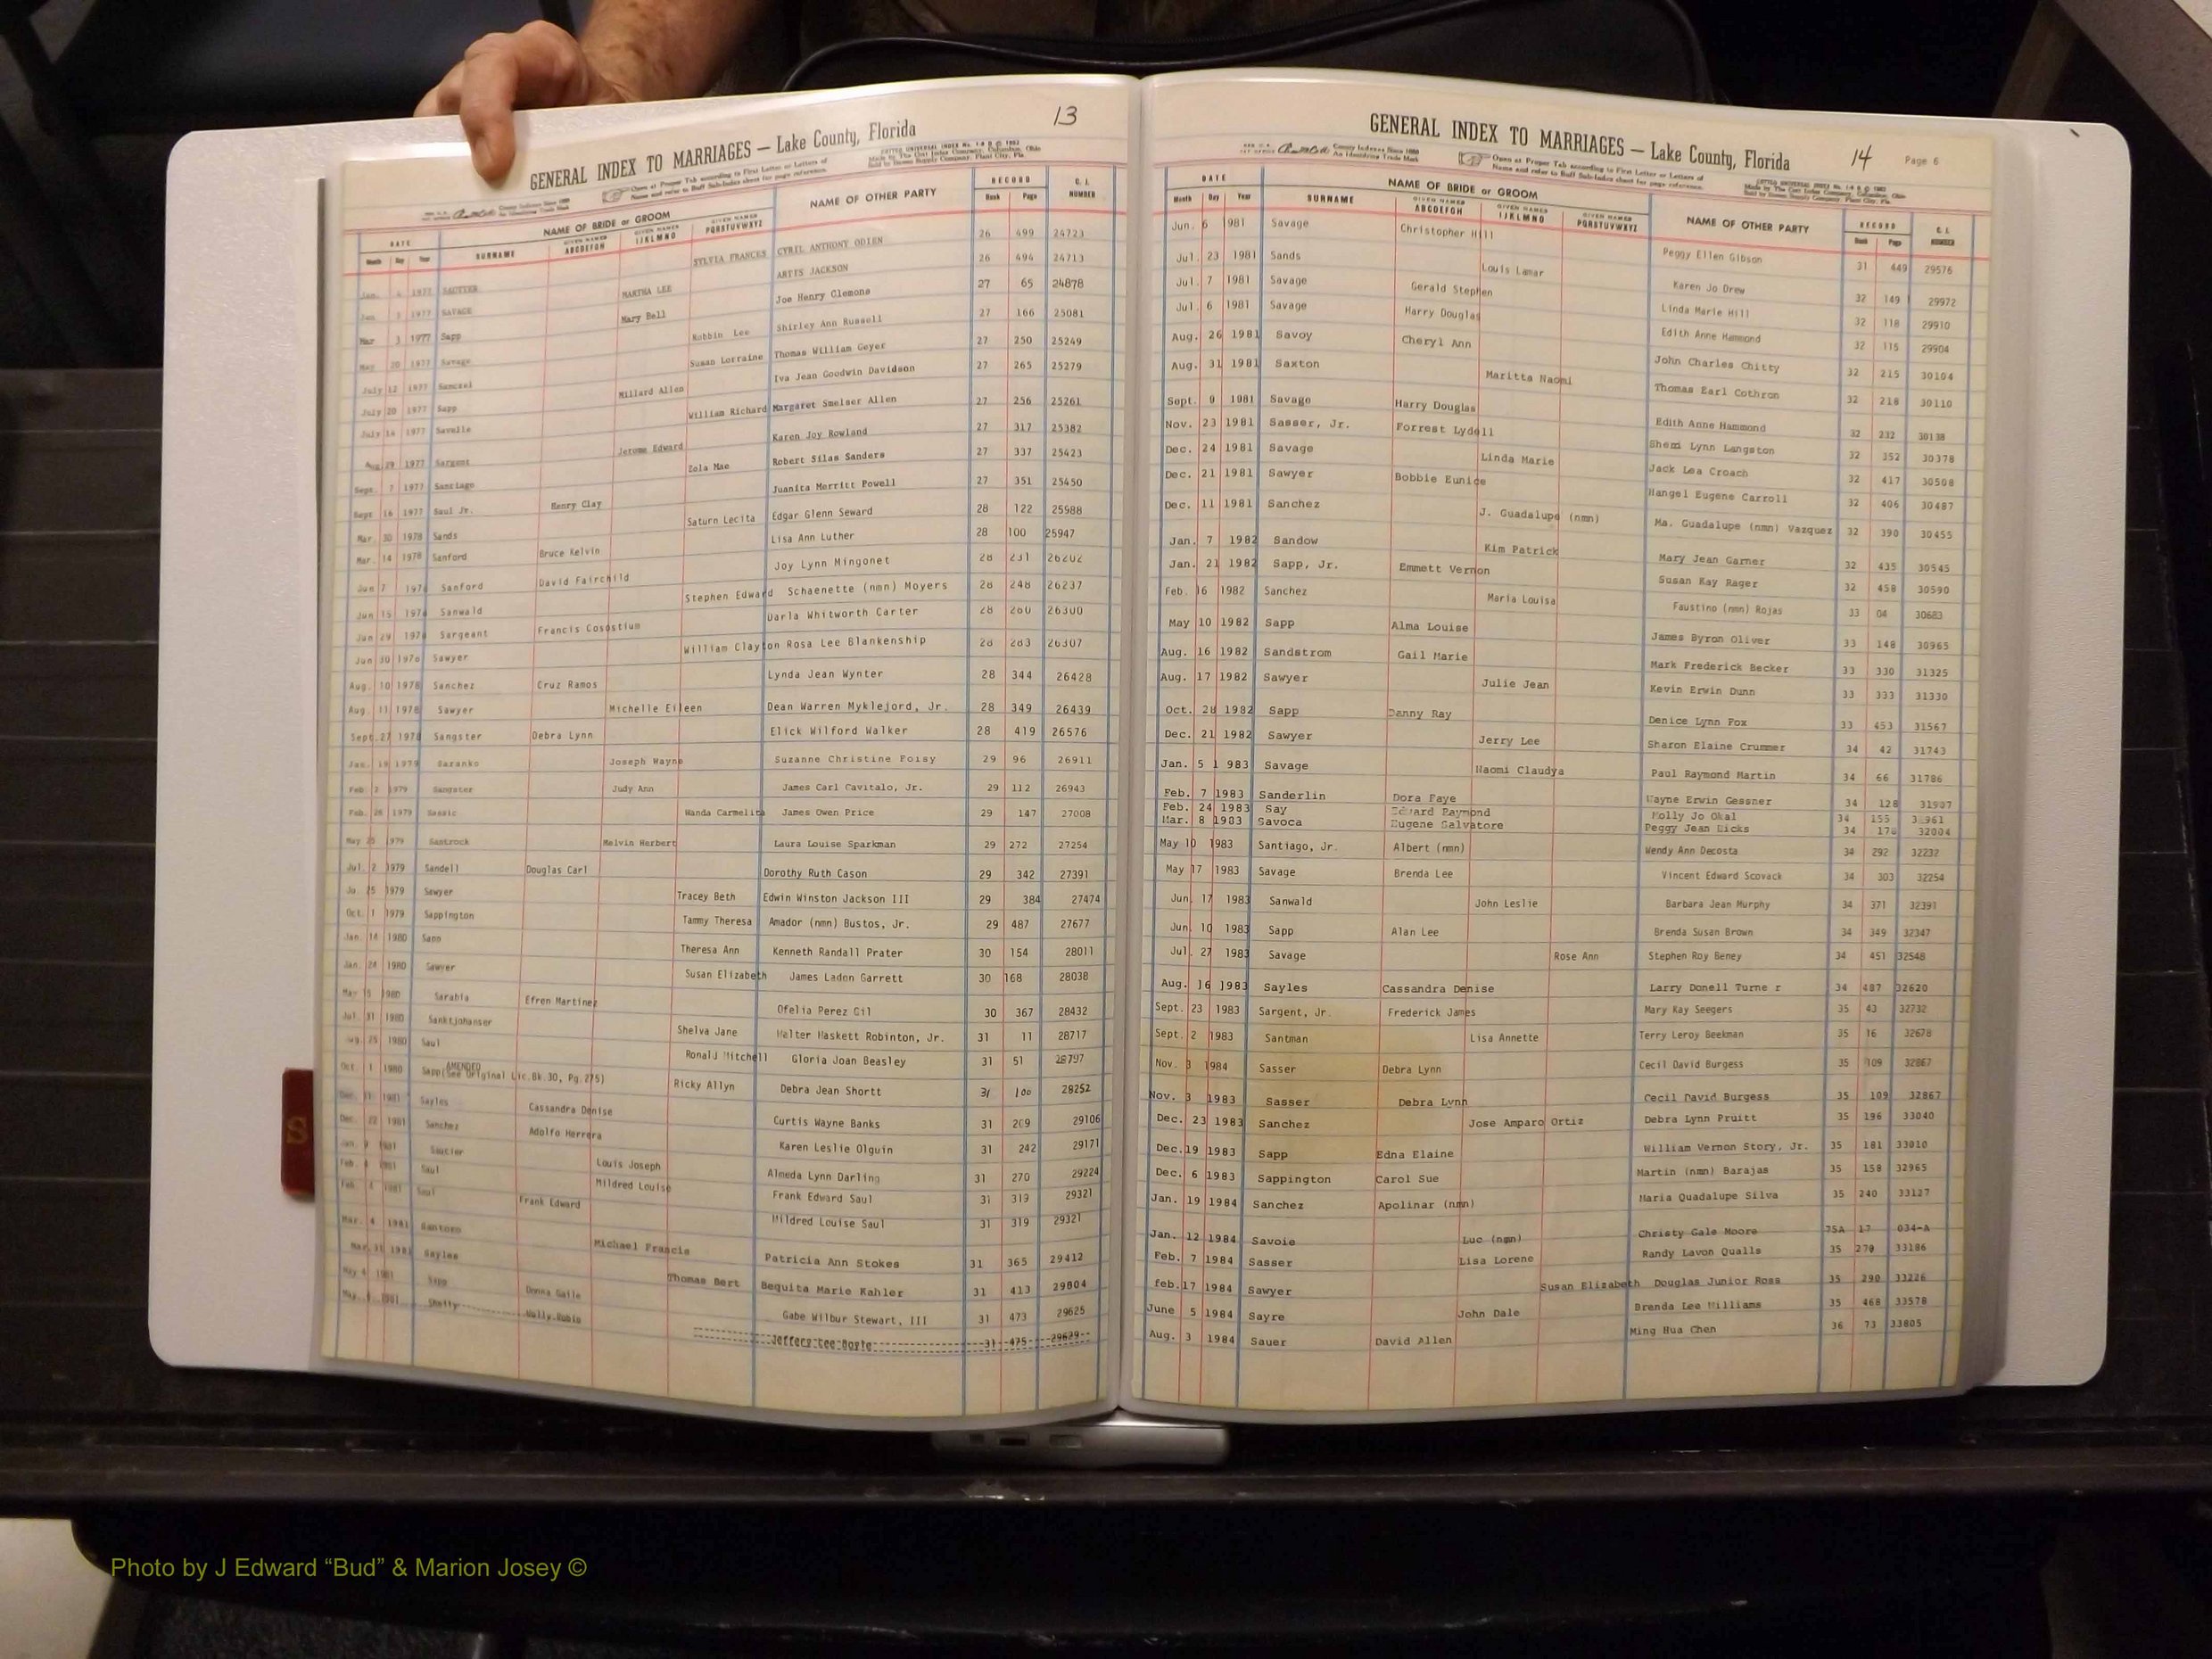 13
GENERAL INDEX TO MARRIAGES — Lake County, Florida
Open at Proper Tab according to First Letter or Letters of
Name and refer to Buff Sub-Index sheet for page reference.
DATE NAME OF BRIDE or GROOM NAME OF OTHER PARTY RECORD NUMBER
Month Day Year SURNAME GIVEN NAMES ABCDEFGH GIVEN NAMES IJKLMNO GIVEN NAMES PQRSTUVWXYZ Book Page
1977 SYLVIA FRANCES CYRIL ANTHONY ODIEN 26 499 24723
1977 SAVAGE MARTHA LEE ARTIS JACKSON 26 494 24713
Mar 3 1977 Sapp Mary Bell Joe Henry Clemons 27 65 24878
May 20 1977 Savage Robbin Lee Shirley Ann Russell 27 166 25081
July 12 1977 Susan Lorraine Thomas William Geyer 27 250 25249
July 20 1977 Sapp Millard Allen Iva Jean Goodwin Davidson 27 265 25279
July 14 1977 Savelle William Richard Margaret Smelser Allen 27 256 25261
Aug 29 1977 Sargent Jerome Edward Karen Joy Rowland 27 317 25382
Sept. 7 1977 Santiago Zola Mae Robert Silas Sanders 27 337 25423
Sept 16 1977 Saul Jr. Henry Clay Juanita Merritt Powell 27 351 25450
Mar. 30 1978 Sands Saturn Lecita Edgar Glenn Seward 28 122 25988
Mar. 14 1978 Sanford Bruce Kelvin Lisa Ann Luther 28 100 25947
Jun 7 197 Sanford David Fairchild Joy Lynn Mingonet 28 231 26202
Jun 15 197 Sanwald Stephen Edward Schaenette (nmn) Moyers 28 248 26237
Jun 29 197 Sargeant Francis Cosostium Darla Whitworth Carter 28 280 26300
Jun 30 1978 Sawyer William Clayton Rosa Lee Blankenship 28 283 26307
Aug. 10 1978 Sanchez Cruz Ramos Lynda Jean Wynter 28 344 26428
Aug. 11 1978 Sawyer Michelle Eileen Dean Warren Myklejord, Jr. 28 349 26439
Sept. 27 1978 Sangster Debra Lynn Elick Wilford Walker 28 419 26576
Jan. 19 1979 Saranko Joseph Wayne Suzanne Christine Foisy 29 96 26911
Feb 2 1979 Sangster Judy Ann James Carl Cavitalo, Jr. 29 112 26943
Feb. 28 1979 Wanda Carmelita James Owen Price 29 147 27008
May 25 1979 Santrock Melvin Herbert Laura Louise Sparkman 29 272 27254
Jul. 2 1979 Sandell Douglas Carl Dorothy Ruth Cason 29 342 27391
Ju. 25 1979 Sawyer Tracey Beth Edwin Winston Jackson III 29 384 27474
Oct. 1 1979 Sappington Tammy Theresa Amador (nmn) Bustos, Jr. 29 487 27677
Jan. 14 1980 Sapp Theresa Ann Kenneth Randall Prater 30 154 28011
Jan. 24 1980 Sawyer Susan Elizabeth James Ladon Garrett 30 168 28038
May 15 1980 Sarabia Efren Martinez Ofelia Perez Gil 30 367 28432
Jul. 31 1980 Sanktjohanser Shelva Jane Walter Haskett Robinton, Jr. 31 11 28717
Aug. 25 1980 Saul Ronald Mitchell Gloria Joan Beasley 31 51 28797
AMENDED
Oct. 1 1980 Sapp(See Original Lic.Bk.30, Pg.275) Ricky Allyn Debra Jean Shortt 31 100 28252
1981 Sayles Cassandra Denise Curtis Wayne Banks 31 209 29106
Dec. 22 1981 Sanchez Adolfo Herrera Karen Leslie Olguin 31 242 29171
Jan. 1981 Saucier Louis Joseph Almeda Lynn Darling 31 270 29224
Feb. 1981 Saul Mildred Louise Frank Edward Saul 31 319 29321
Feb. 1981 Saul Frank Edward Mildred Louise Saul 31 319 29321
Mar. 4 1981 Santoro Michael Francis Patricia Ann Stokes 31 365 29412
Mar. 31 1981 Sayles Thomas Bert Bequita Marie Kahler 31 413 29804
May 4 1981 Sapp Donna Gaile Gabe Wilbur Stewart, III 31 473 29625
May 1981 Jeffery Lee Boyle 31 475 29629
GENERAL INDEX TO MARRIAGES — Lake County, Florida
14 Page 6
Open at Proper Tab according to First Letter or Letters of
Name and refer to Buff Sub-Index sheet for page reference.
DATE NAME OF BRIDE or GROOM NAME OF OTHER PARTY RECORD NUMBER
Month Day Year SURNAME GIVEN NAMES ABCDEFGH GIVEN NAMES IJKLMNO GIVEN NAMES PQRSTUVWXYZ Book Page
Jun. 6 1981 Savage Christopher Hill Peggy Ellen Gibson 31 449 29576
Jul. 23 1981 Sands Louis Lamar Karen Jo Drew 32 149 29972
Jul. 7 1981 Savage Gerald Stephen Linda Marie Hill 32 118 29910
Jul. 6 1981 Savage Harry Douglas Edith Anne Hammond 32 115 29904
Aug. 26 1981 Savoy Cheryl Ann John Charles Chitty 32 215 30104
Aug. 31 1981 Saxton Maritta Naomi Thomas Earl Cothron 32 218 30110
Sept. 9 1981 Savage Harry Douglas Edith Anne Hammond 32 232 30138
Nov. 23 1981 Sasser, Jr. Forrest Lydell Sherri Lynn Langston 32 352 30378
Dec. 24 1981 Savage Linda Marie Jack Lea Croach 32 417 30508
Dec. 21 1981 Sawyer Bobbie Eunice Hangel Eugene Carroll 32 406 30487
Dec. 11 1981 Sanchez J. Guadalupe (nmn) Ma. Guadalupe (nmn) Vazquez 32 390 30455
Jan. 7 1982 Sandow Kim Patrick Mary Jean Garner 32 435 30545
Jan. 21 1982 Sapp, Jr. Emmett Vernon Susan Kay Rager 32 458 30590
Feb. 16 1982 Sanchez Maria Louisa Faustino (nmn) Rojas 33 04 30683
May 10 1982 Sapp Alma Louise James Byron Oliver 33 148 30965
Aug. 16 1982 Sandstrom Gail Marie Mark Frederick Becker 33 330 31325
Aug. 17 1982 Sawyer Julie Jean Kevin Erwin Dunn 33 333 31330
Oct. 28 1982 Sapp Danny Ray Denice Lynn Fox 33 453 31567
Dec. 21 1982 Sawyer Jerry Lee Sharon Elaine Crummer 34 42 31743
Jan. 5 1 983 Savage Naomi Claudya Paul Raymond Martin 34 66 31786
Feb. 7 1983 Sanderlin Dora Faye Wayne Erwin Gessner 34 128 31907
Feb. 24 1983 Say Edward Raymond Molly Jo Okal 34 155 3 961
Mar. 8 1983 Savoca Eugene Salvatore Peggy Jean Hicks 34 178 32004
May 10 1983 Santiago, Jr. Albert (nmn) Wendy Ann Decosta 34 292 32232
May 17 1983 Savage Brenda Lee Vincent Edward Scovack 34 303 32254
Jun. 17 1983 Sanwald John Leslie Barbara Jean Murphy 34 371 32391
Jun. 10 1983 Sapp Alan Lee Brenda Susan Brown 34 349 32347
Jul. 27 1983 Savage Rose Ann Stephen Roy Beney 34 451 32548
Aug. 16 1983 Sayles Cassandra Denise Larry Donell Turne r 34 487 32620
Sept. 23 1983 Sargent, Jr. Frederick James Mary Kay Seegers 35 43 32732
Sept. 2 1983 Santman Lisa Annette Terry Leroy Beekman 35 16 32678
Nov. 3 1984 Sasser Debra Lynn Cecil David Burgess 35 109 32867
Nov. 3 1983 Sasser Debra Lynn Cecil David Burgess 35 109 32867
Dec. 23 1983 Sanchez Jose Amparo Ortiz Debra Lynn Pruitt 35 196 33040
Dec. 19 1983 Sapp Edna Elaine William Vernon Story, Jr. 35 181 33010
Dec. 6 1983 Sappington Carol Sue Martin (nmn) Barajas 35 158 32965
Jan. 19 1984 Sanchez Apolinar (nmn) Maria Quadalupe Silva 35 240 33127
Jan. 12 1984 Savoie Luc (nmn) Christy Gale Moore 75A 17 034-A
Feb. 7 1984 Sasser Lisa Lorene Randy Lavon Qualls 35 270 33186
feb. 17 1984 Sawyer Susan Elizabeth Douglas Junior Ross 35 290 33226
June 5 1984 Sayre John Dale Brenda Lee Williams 35 468 33578
Aug. 3 1984 Sauer David Allen Ming Hua Chen 36 73 33805
S
Photo by J Edward “Bud” & Marion Josey ©